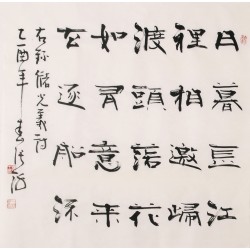 日暮長江
裡相邀歸
渡頭落花
如有意来
去逐船流
右錄儲光羲詩
乙酉年春